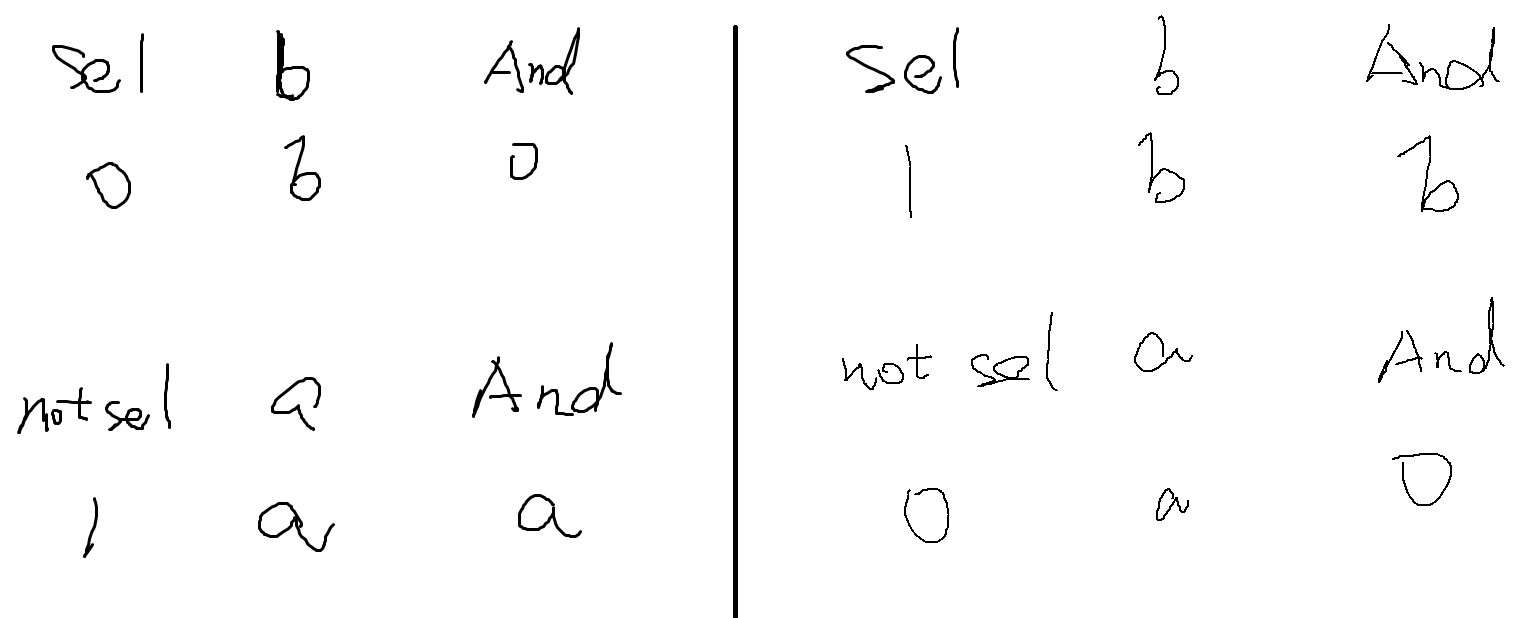 Sel b And
0 b 0
not sel a And
1 a a
Sel b And
1 b b
not sel a And
0 a 0